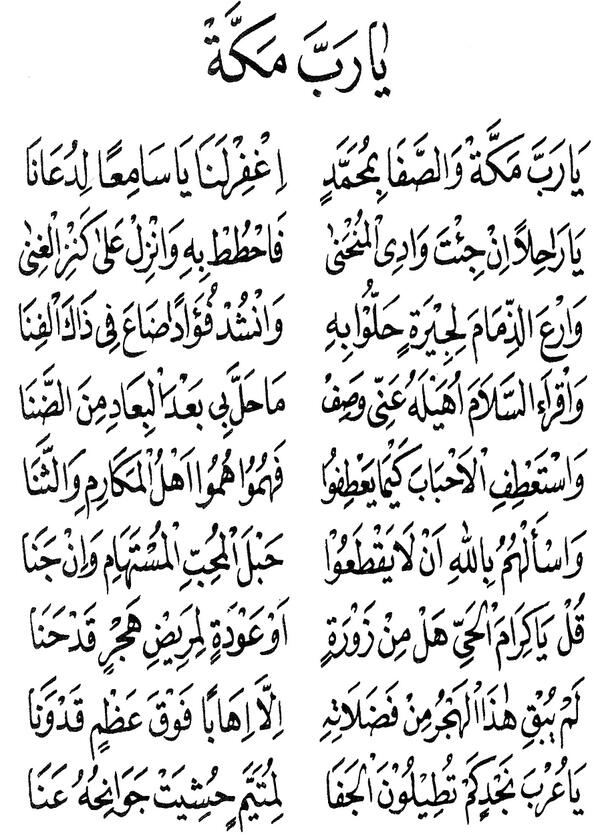 يَا رَبَّ مَكَّةْ
يَارَبَّ مَكَّةْ وَالصَّفَا بِمُحَمَّدٍ اِغْفِرْلَنَا يَا سَامِعًا لِدُعَانَا
يَارَاحِلاً اِنْ جِئْتَ وَادِى الْمُنْحَنٰى فَاحْطُطْ بِهِ وَانْزِلْ عَلٰى كَنْزِ الْغِنٰى
وَارْعَ الذِّمَامَ لِجِيْرَةٍ حَلُّوْا بِهِ وَانْشُدْ فُؤَادًا ضَاعَ فِى ذَاكَ الْفِنَا
وَاقْرَاءِ السَّلاَمَ اُهَيْلَهُ عَنِّى وَصِفْ مَاحَلَّ بِى بَعْدَ الْبِعَادِ مِنَ الضَّنَا
وَاسْتَعْطِفِ الْاَحْبَابَ كَيْمَا يَعْطِفُوْا فَهُمُوْا هُمُوْا اَهْلُ الْمَكَارِمِ وَالثَّنَا
وَاسْأَلْهُمُ بِاللهِ اَنْ لَا يَقْطَعُوْا حَبْلَ الْمُحِبِّ الْمُسْتَهَامِ وَاِنْ جَنَا
قُلْ يَاكِرَامَ الْحَيِّ هَلْ مِنْ زَوْرَةٍ اَوْ عَوْدَةٍ لِمَرِيْضِ هَجْرٍ قَدْ حَنَا
لَمْ يُبْقِ هٰذَا الْهَجْرُ مِنْ فَضَلَاتِهِ اِلَّا اِهَابًا فَوْقَ عَظْمٍ قَدْ وَنَا
يَا عُرْبَ نَجْدٍ كَمْ تُطِيْلُوْنَ الْجَفَا لِمُتَيَّمٍ حُشِيَتْ جَوَانِحُهُ عَنَا